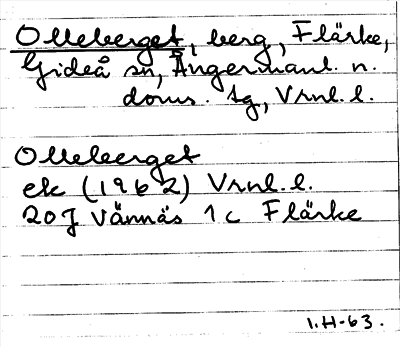 Olleberget, berg, Flärke,
Gideå sn, Ångermanl. n.
doms. tg, Vrnl. l.
Olleberget
ek (1962) Vrnl. l.
20J Vännäs 1c Flärke
I.H-63.